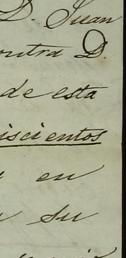 D. Juan
contra D.
de esta
iscientos
y en
su